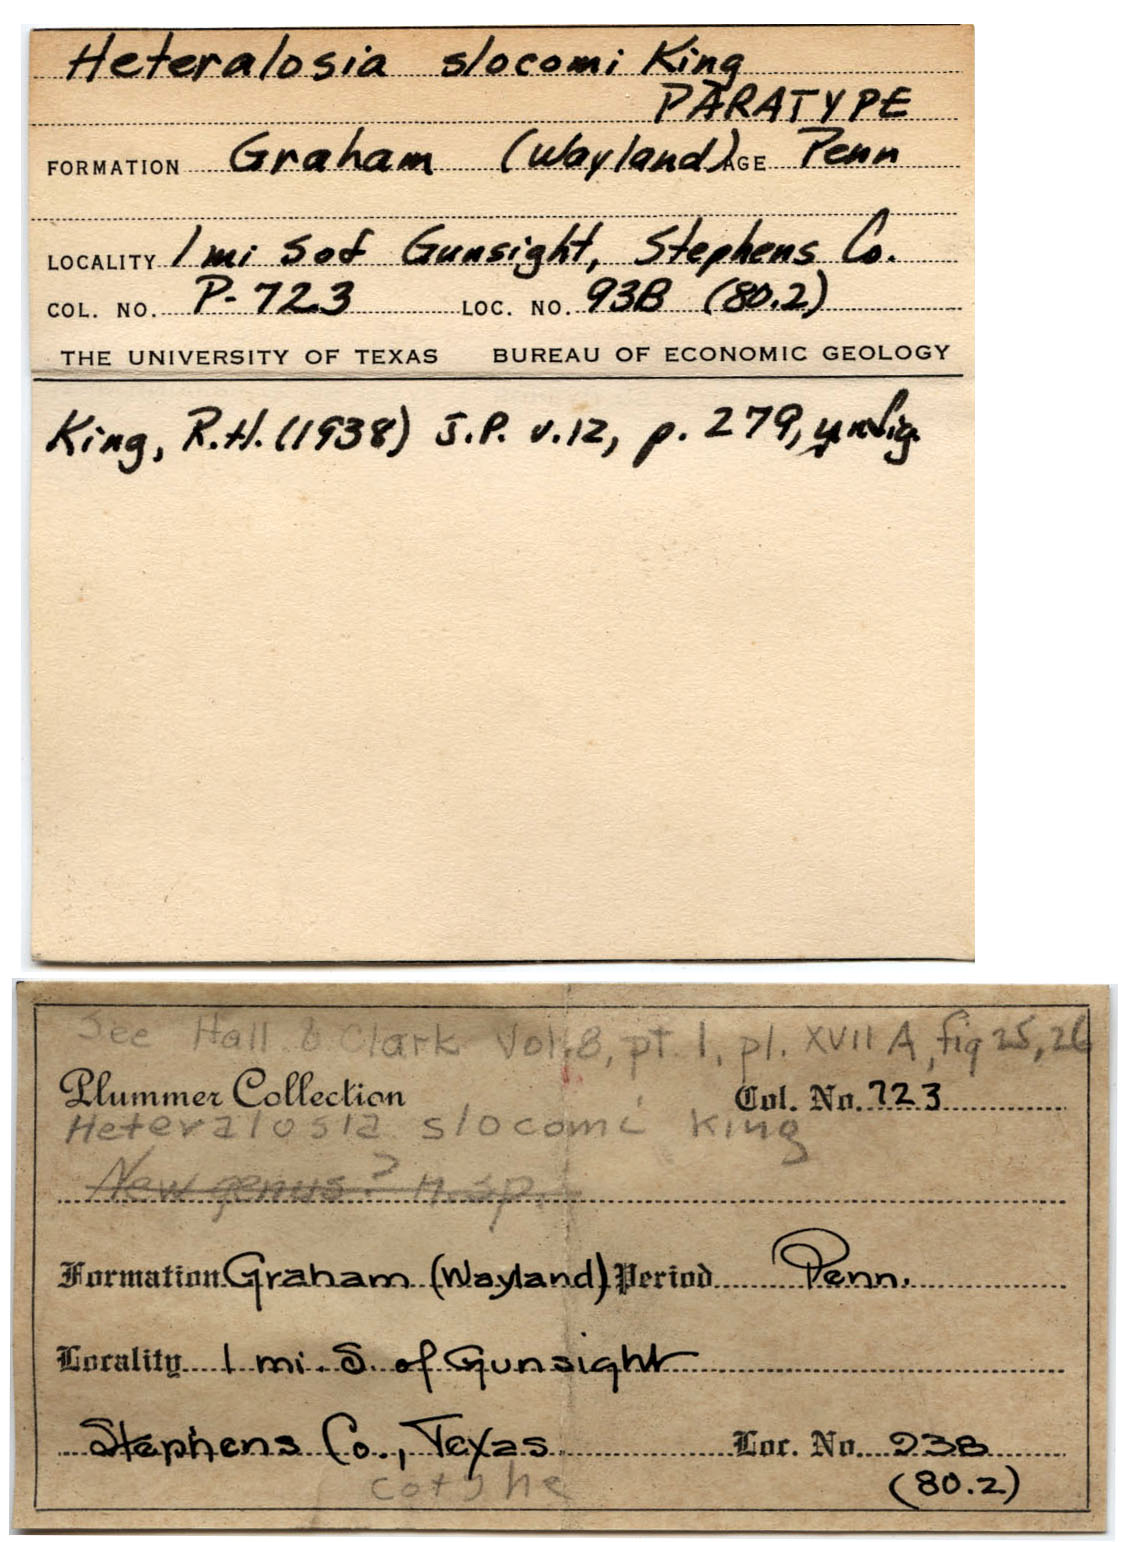 Heteralosia slocomi King
PARATYPE
FORMATION Graham (Wayland) AGE Penn
LOCALITY 1 mi S of Gunsight, Stephens Co.
COL. NO. P-723 LOC. NO. 93B (80.2)
THE UNIVERSITY OF TEXAS BUREAU OF ECONOMIC GEOLOGY
King, R.H. (1938) J.P. v.12, p. 279, unfig.
See Hall & Clark Vol. 8, pt. 1, pl. XVII A, fig 25, 26
Plummer Collection Col. No. 723
Heteralosia slocomi King
New genus? n. sp.
Formation Graham (Wayland) Period Penn.
Locality 1 mi. S. of Gunsight
Stephens Co., Texas Loc. No. 93B
cotype (80.2)